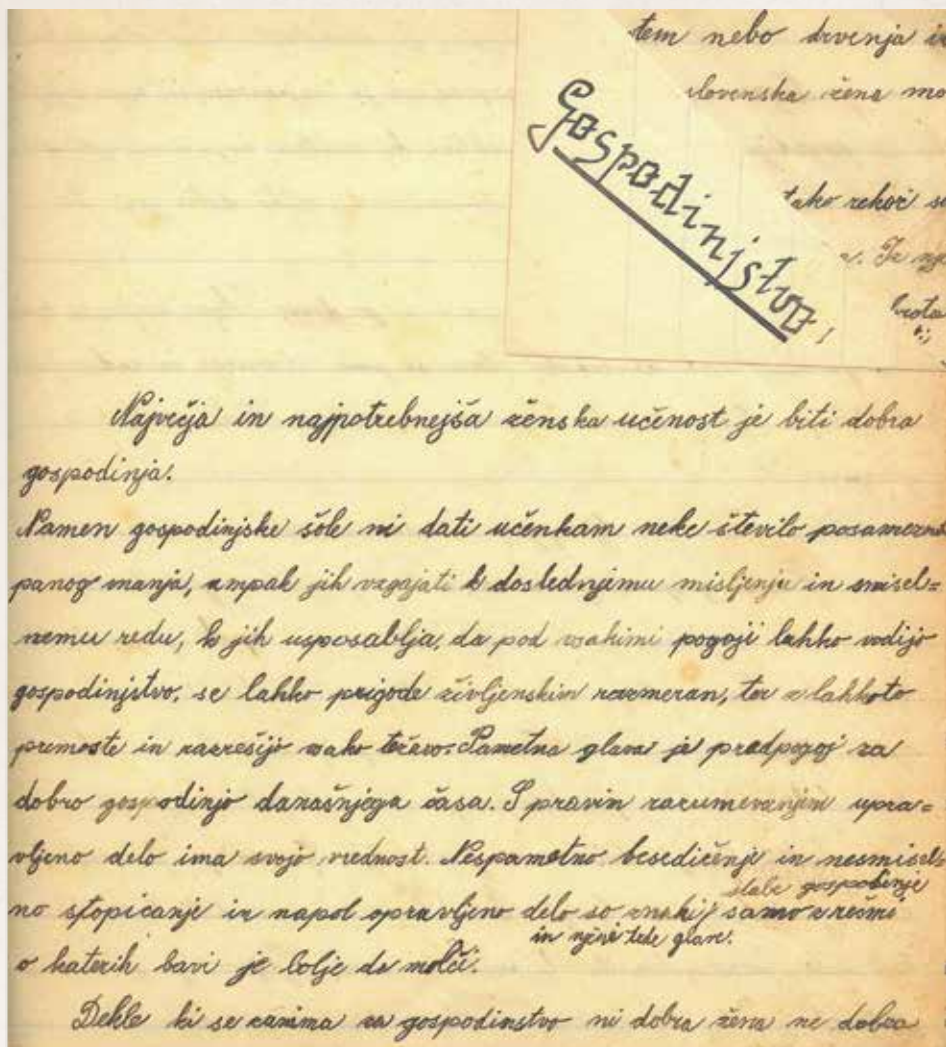 tem nebo drvenja in
slovenska žena mo
Gospodinjstvo,
tako rekoč se
Iz nje
Največja in najpotrebnejša ženska učenost je biti dobra
gospodinja.
Namen gospodinjske šole ni dati učenkam neke število posamezno
panog znanja, ampak jih vzgajati k doslednjimu mišljenju in smisel=
nemu redu, k jih usposablja, da pod vsakimi pogoji lahko vodijo
gospodinjstvo, se lahko prigode življenskim razmeram, ter z lahkoto
premoste in razrešijo vsako težavo. Pametna glava je predpogoj za
dobro gospodinjo današnjega časa. S pravim razumevanjem upra=
vljeno delo ima svojo vrednost. Nespametno besedičenje in nesmisel=
no stopicanje in napol opravljeno delo so znaki slabe gospodinje
in njene trde glave. samo z rečmi
o katerih bavi je bolje da molči.
Dekle ki se zanima za gospodinstvo ni dobra žena ne dobra